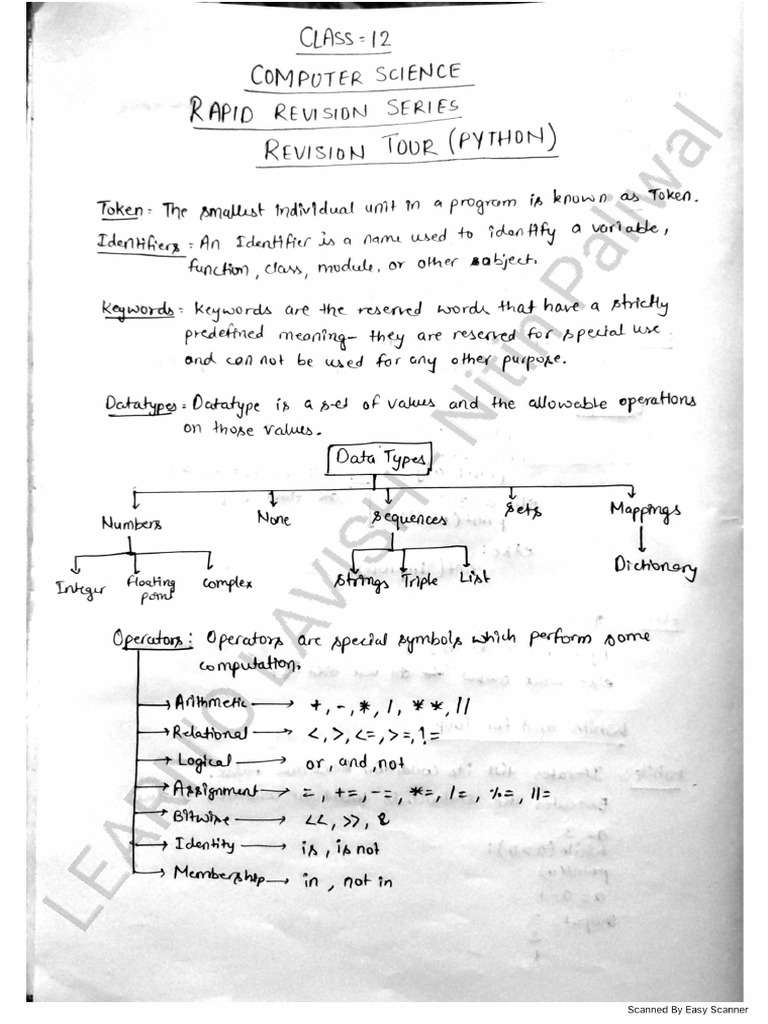 CLASS = 12
COMPUTER SCIENCE
RAPID REVISION SERIES
REVISION TOUR (PYTHON)
Token = The smallest individual unit in a program is known as Token.
Identifiers = An Identifier is a name used to identify a variable,
function, class, module, or other object.
Keywords = Keywords are the reserved words that have a strictly
predefined meaning- they are reserved for special use
and can not be used for any other purpose.
Datatypes = Datatype is a set of values and the allowable operations
on those values.
Data Types
Numbers None Sequences Sets Mappings
Integer Floating point Complex Strings Triple List Dictionary
Operators : Operators are special symbols which perform some
computation.
Arithmetic → +, -, *, /, **, //
Relational → <, >, <=, >=, !=
Logical → or, and, not
Assignment → =, +=, -=, *=, /=, %=, //=
Bitwise → <<, >>, &
Identity → is, is not
Membership → in, not in
LEARN O LAVISH - Nitin Paliwal
Scanned By Easy Scanner